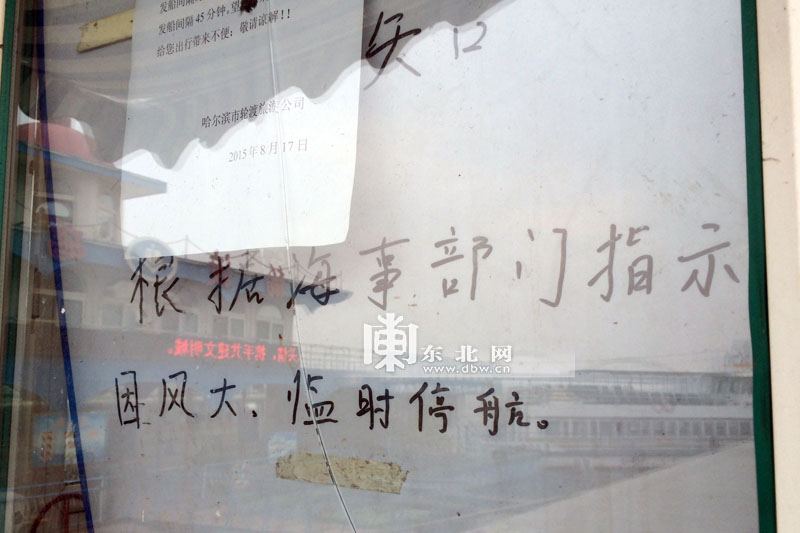 发船间隔45分钟。望
给您出行带来不便，敬请谅解！！
哈尔滨市轮渡旅游公司
2015年8月17日
根据海事部门指示
东北网
www.dbw.cn
携手共建文明城。
因风大、临时停航。